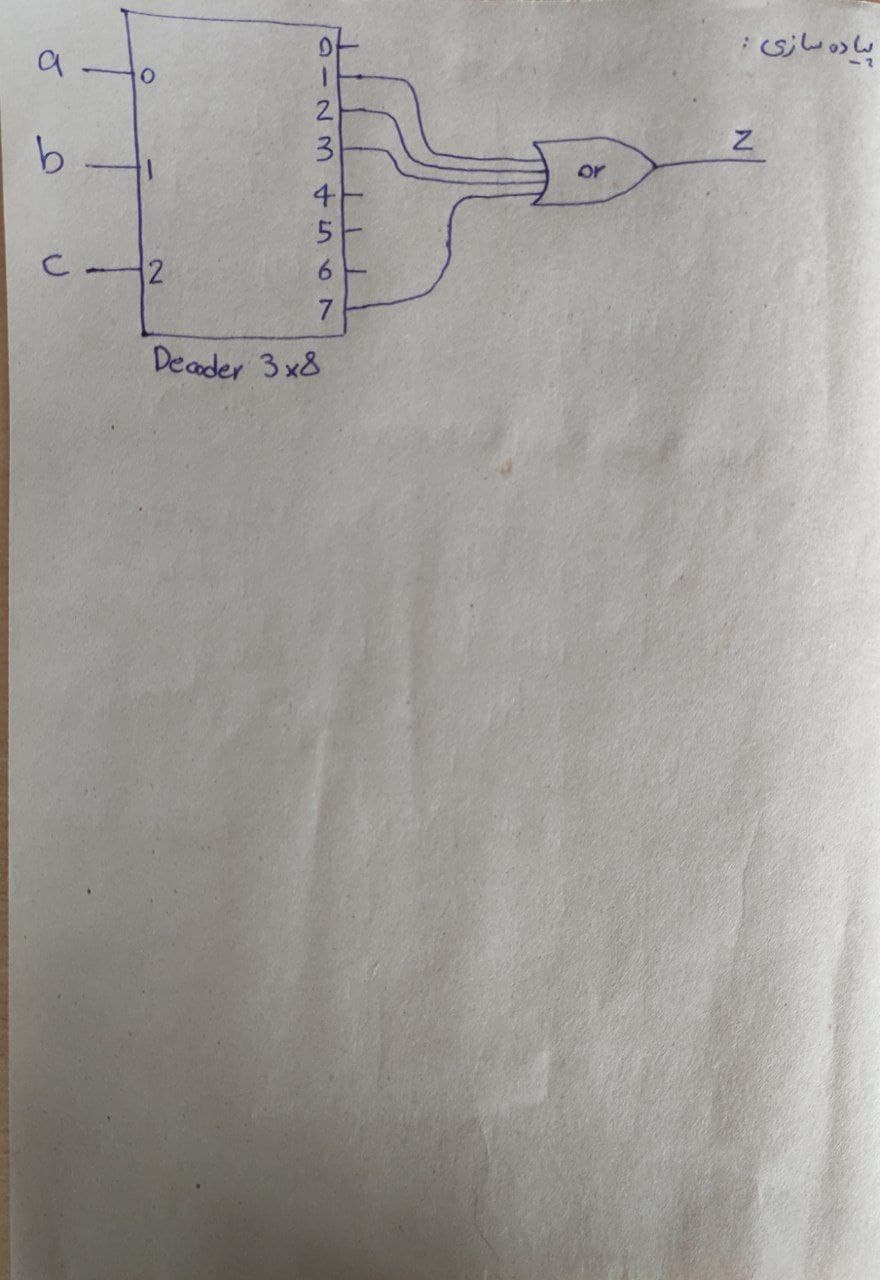 پیاده سازی :
a
b
c
0
1
2
0
1
2
3
4
5
6
7
or
Z
Decoder 3x8